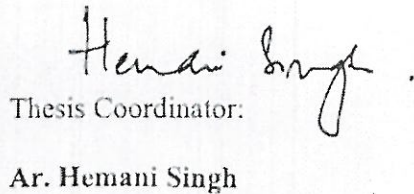 Hemani Singh.
Thesis Coordinator:
Ar. Hemani Singh